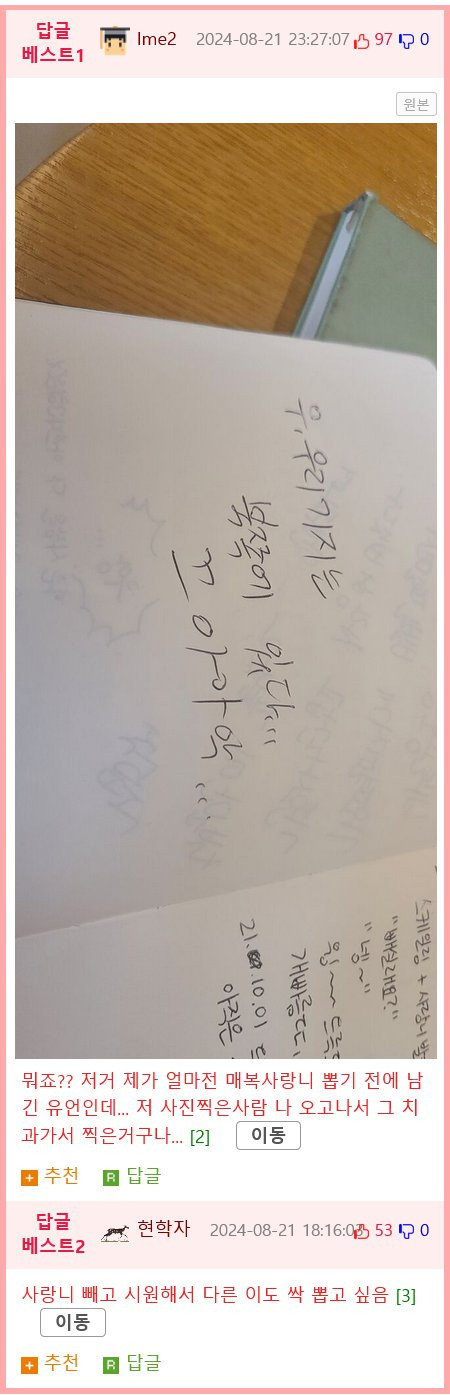 답글
베스트1
lme2
2024-08-21 23:27:07
97
0
원본
우, 우리기지는
이
있다...
끄아아악...
스케일링 + 사랑니
"넹~"
21. 10.01
아직은
뭐죠?? 저거 제가 얼마전 매복사랑니 뽑기 전에 남
긴 유언인데... 저 사진찍은사람 나 오고나서 그 치
과가서 찍은거구나... [2]
이동
추천
R 답글
답글
베스트2
현학자
2024-08-21 18:16:03
53
0
사랑니 빼고 시원해서 다른 이도 싹 뽑고 싶음 [3]
이동
추천
R 답글